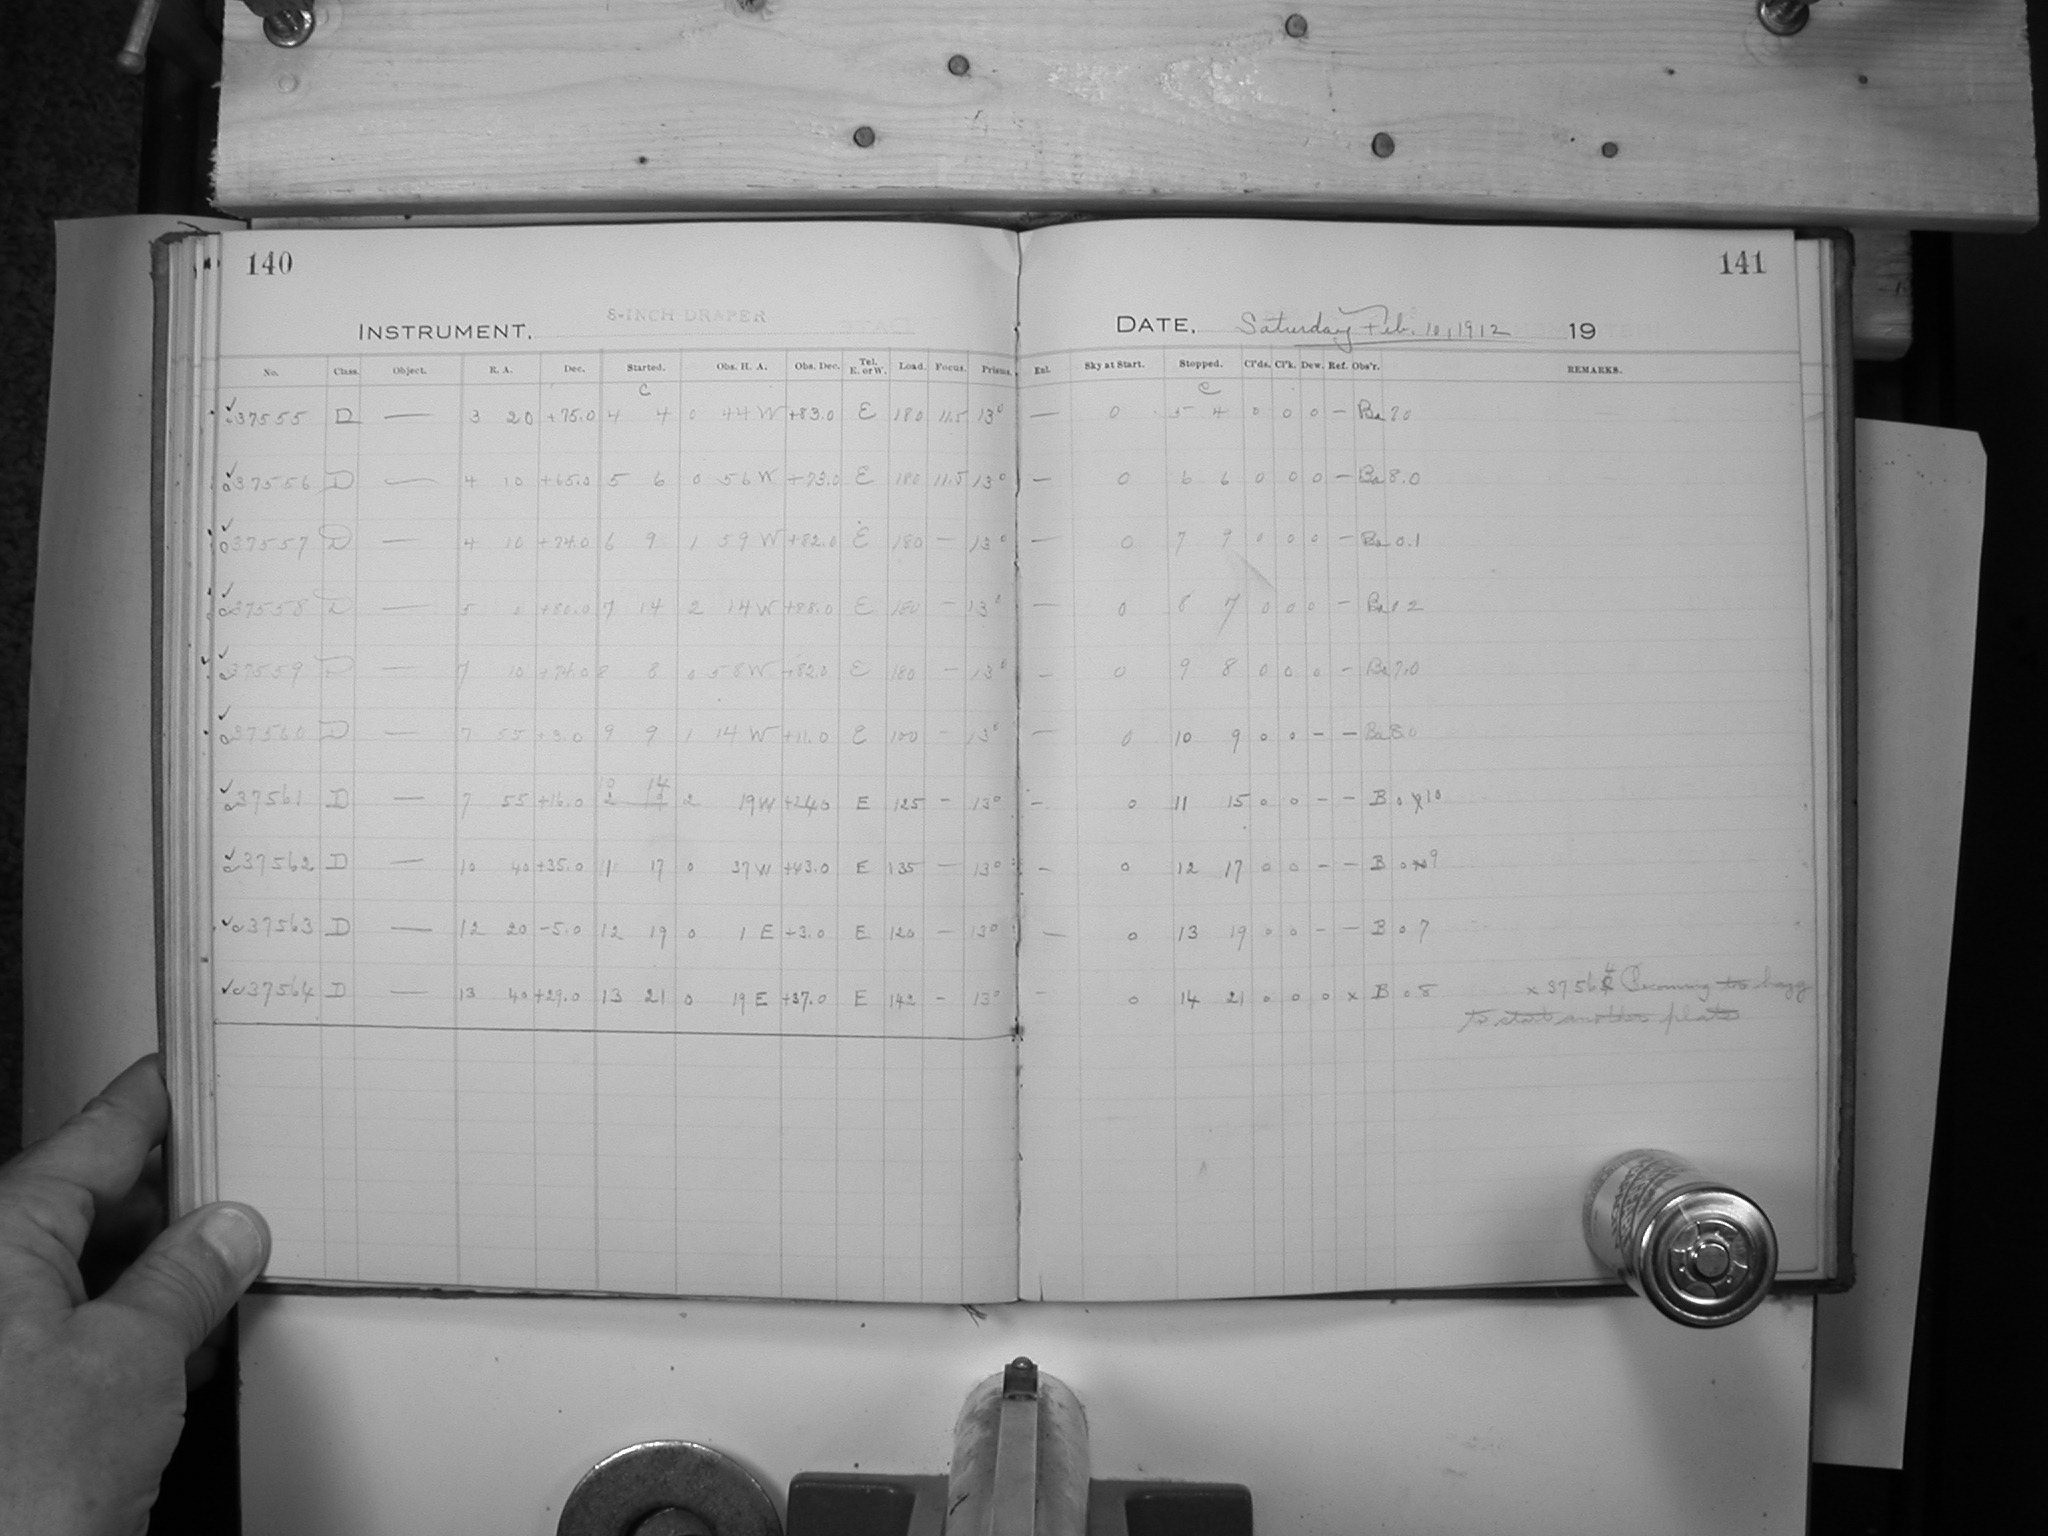 140
141
INSTRUMENT, 8-INCH DRAPER
DATE, Saturday Feb. 10, 1912 19
No. Class. Object. R. A. Dec. Started. Obs. H. A. Obs. Dec. Tel. E. or W. Load. Focus. Prisms. Enl. Sky at Start. Stopped. Cl'ds. Cl'k. Dew. Ref. Obs'r. REMARKS.
C C
37555 D — 3 20 +75.0 4 4 0 44 W +83.0 E 180 11.5 13° — 0 5 4 0 0 0 — Ba 7.0
37556 D — 4 10 +65.0 5 6 0 56 W +73.0 E 180 11.5 13° — 0 6 6 0 0 0 — Ba 8.0
37557 D — 4 10 +74.0 6 9 1 59 W +82.0 E 180 — 13° — 0 7 9 0 0 0 — Ba 0.1
37558 D — 5 0 +80.0 7 14 2 14 W +88.0 E 180 — 13° — 0 8 7 0 0 0 — Ba 2
37559 D — 7 10 +74.0 8 8 0 58 W +82.0 E 180 — 13° — 0 9 8 0 0 0 — Ba 7.0
37560 D — 7 55 +3.0 9 9 1 14 W +11.0 E 100 — 13° — 0 10 9 0 0 — — Ba 8.0
37561 D — 7 55 +16.0 10 14 2 19 W +24.0 E 125 — 13° — 0 11 15 0 0 — — B 0 10
37562 D — 10 40 +35.0 11 17 0 37 W +43.0 E 135 — 13° — 0 12 17 0 0 — — B 0 9
37563 D — 12 20 -5.0 12 19 0 1 E +3.0 E 120 — 13° — 0 13 19 0 0 — — B 0 7
37564 D — 13 40 +29.0 13 21 0 19 E +37.0 E 142 — 13° — 0 14 21 0 0 0 x B 0 8 x 37564 Becoming too hazy
to start another plate